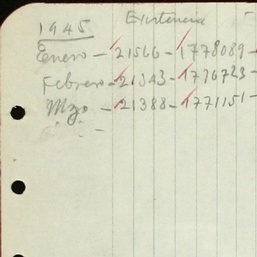 1945 Existencia
Enero - 21566 - 1778089 -
Febrero - 21343 - 1776723 -
Mzo - 21388 - 1771151 -